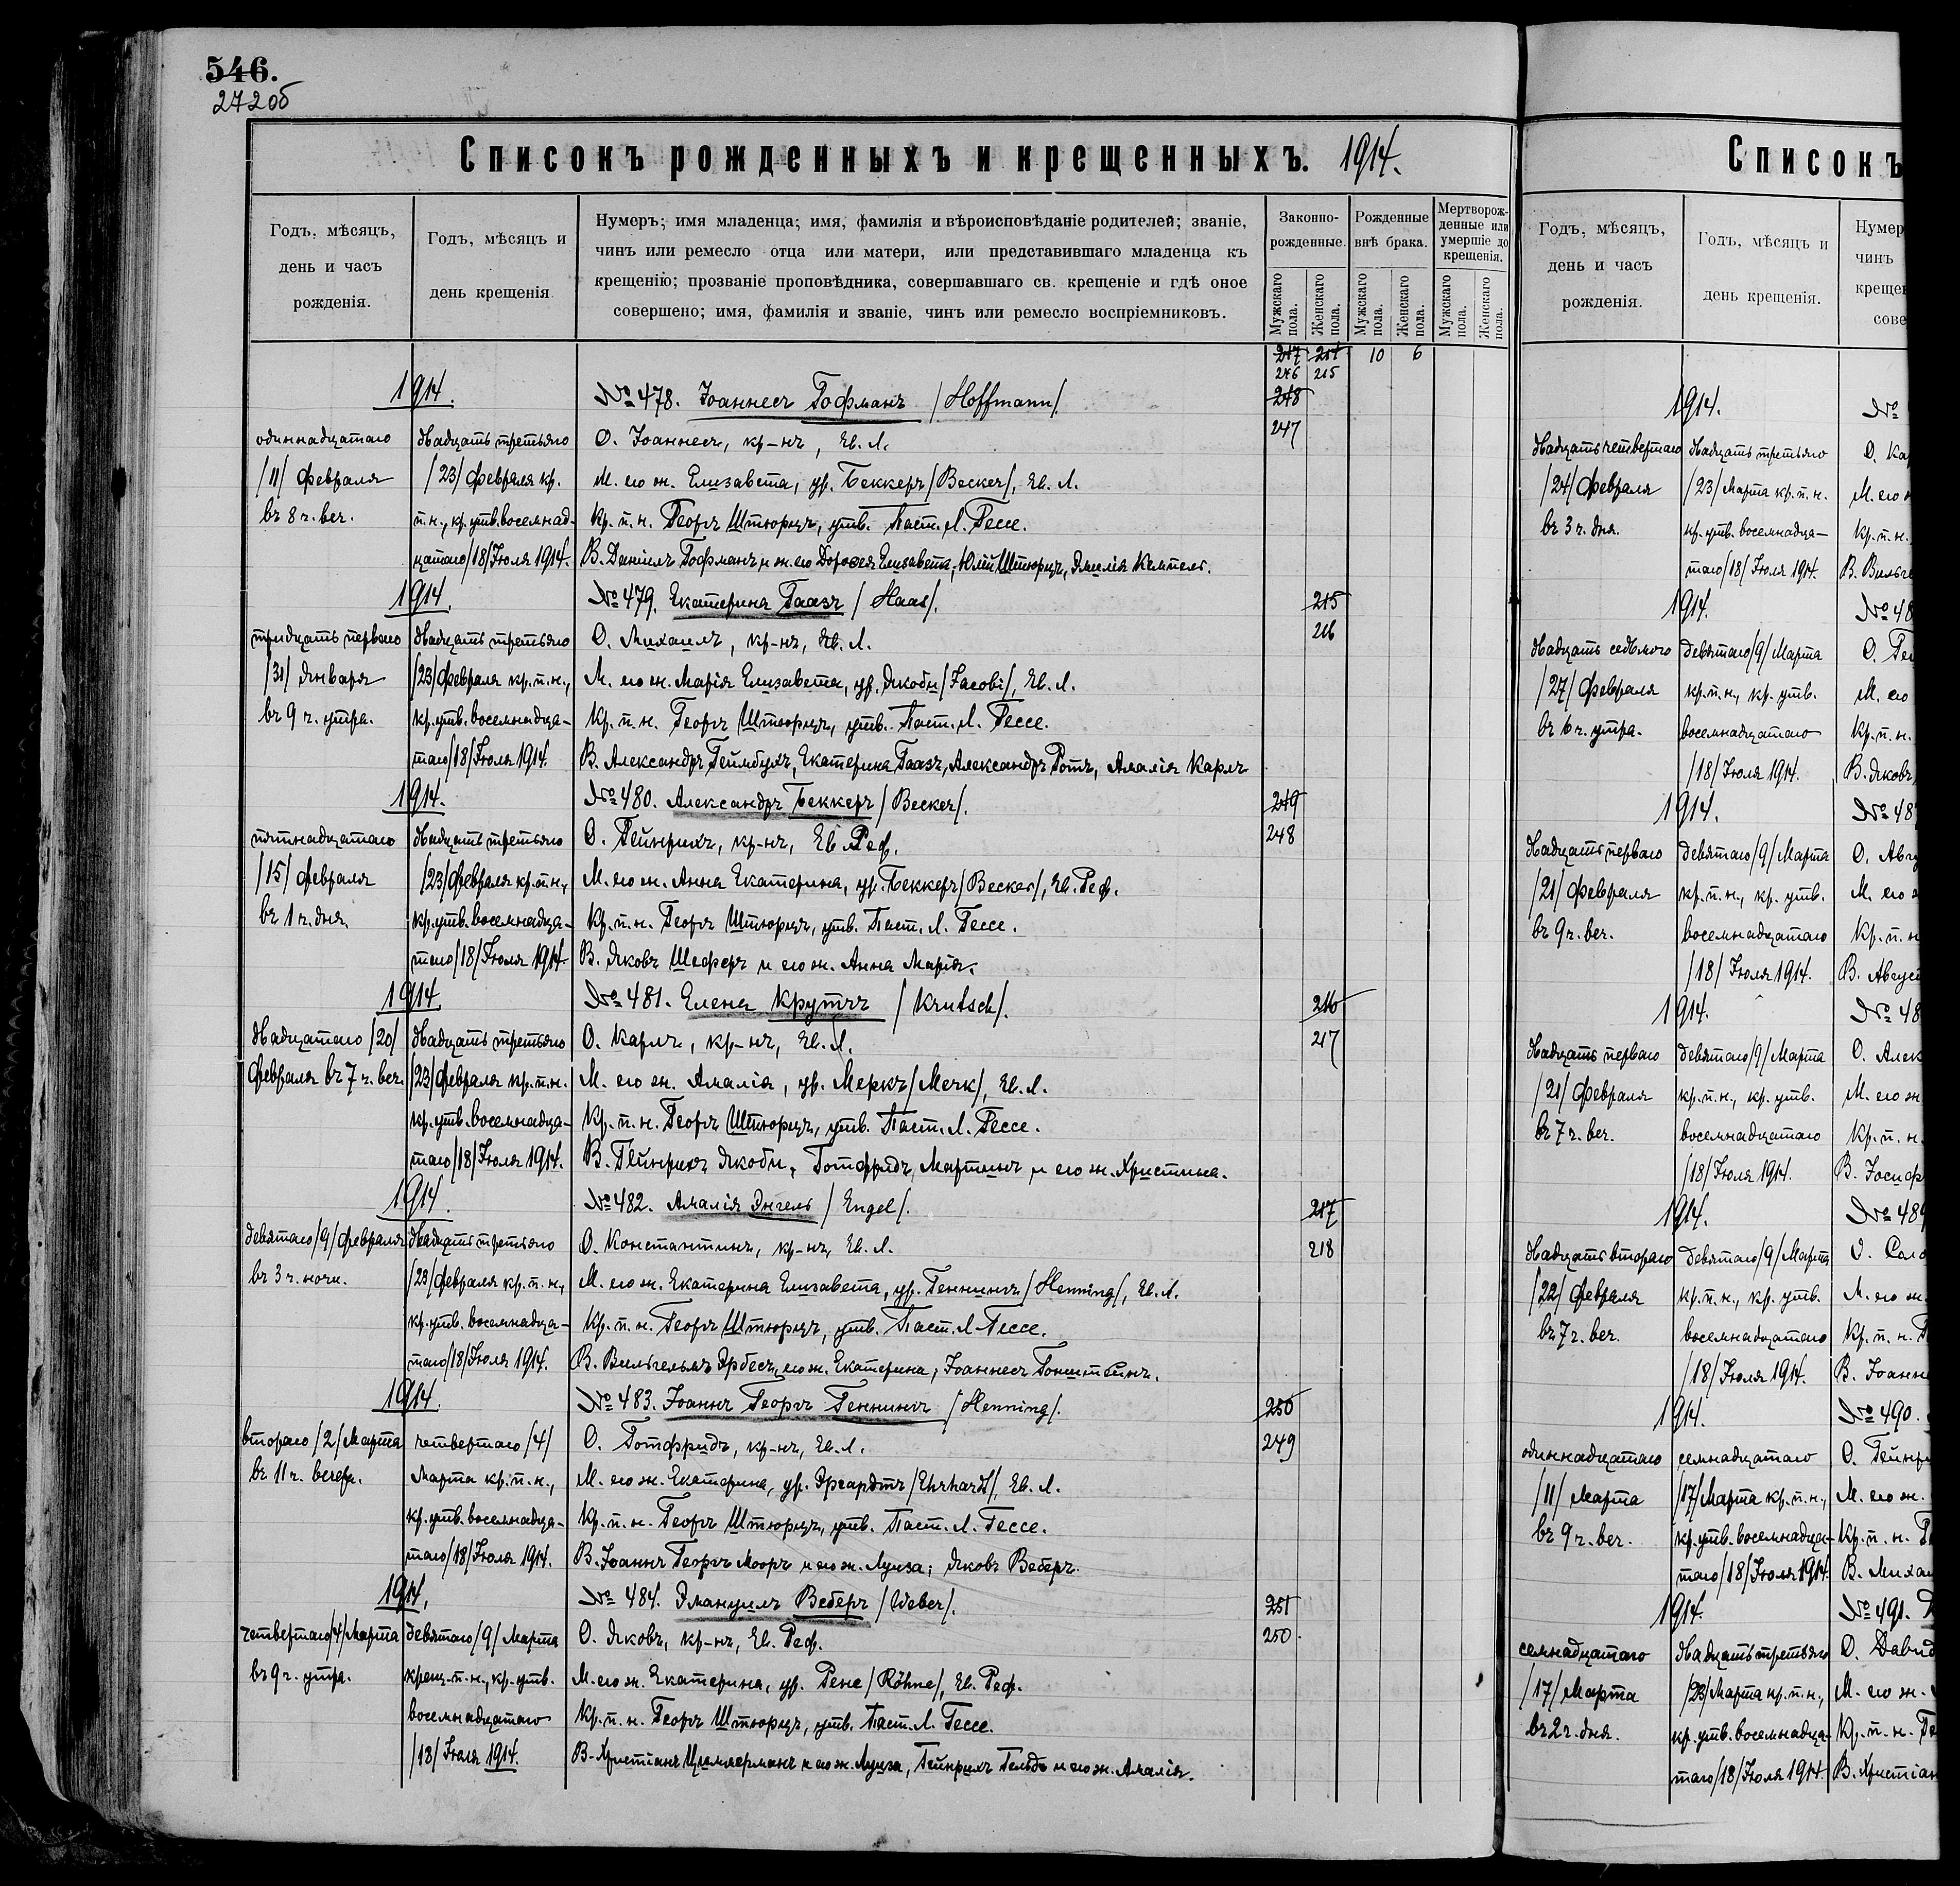 546.
272об
Списокъ рожденныхъ и крещенныхъ. 1914.
Годъ, мѣсяцъ, день и часъ рожденія.
Годъ, мѣсяцъ и день крещенія
Нумеръ; имя младенца; имя, фамилія и вѣроисповѣданіе родителей; званіе,
чинъ или ремесло отца или матери, или представившаго младенца къ
крещенію; прозваніе проповѣдника, совершавшаго св. крещеніе и гдѣ оное
совершено; имя, фамилія и званіе, чинъ или ремесло воспріемниковъ.
Законно-рожденные.
Рожденные внѣ брака.
Мертворож-денные или умершіе до крещенія.
Мужскаго пола.
Женскаго пола.
Мужскаго пола.
Женскаго пола.
Мужскаго пола.
Женскаго пола.
247 214 10 6
246 215
1914. №478. Іоаннесъ Гофманъ /Hoffmann/. 248
одиннадцатаго двадцать третьяго О. Іоаннесъ, кр-нъ, Ев. Л. 247
/11/ февраля /23/ февраля кр. М. его ж. Елизавета, ур. Беккеръ /Becker/, Ев. Л.
въ 8 ч. веч. п.н., кр. утв. восемнад- Кр. п. н. Георгъ Штюрцъ, утв. Паст. Л. Гессе.
цатаго /18/ Іюля 1914. В. Даніилъ Гофманъ и ж. его Доротея Елизавета, Юлій Штюрцъ, Эмилія Кемпель.
1914. №479. Екатерина Гаазъ /Haas/. 215
тридцать перваго двадцать третьяго О. Михаилъ, кр-нъ, Ев. Л. 216
/31/ Января /23/ февраля кр. п. н., М. его ж. Марія Елизавета, ур. Якоби /Jacobi/, Ев. Л.
въ 9 ч. утра. кр. утв. восемнадца- Кр. п. н. Георгъ Штюрцъ, утв. Паст. Л. Гессе.
таго /18/ Іюля 1914. В. Александръ Геймбухъ, Екатерина Гаазъ, Александръ Ротъ, Амалія Карлъ
1914. №480. Александръ Беккеръ /Becker/. 249
пятнадцатаго двадцать третьяго О. Гейнрихъ, кр-нъ, Ев. Реф. 248
/15/ февраля /23/ февраля кр. п. н., М. его ж. Анна Екатерина, ур. Беккеръ /Becker/, Ев. Реф.
въ 1 ч. дня. кр. утв. восемнадца- Кр. п. н. Георгъ Штюрцъ, утв. Паст. Л. Гессе.
таго /18/ Іюля 1914 В. Яковъ Шеферъ и его ж. Анна Марія.
1914. №481. Елена Крутчъ /Krutsch/. 216
двадцатаго /20/ двадцать третьяго О. Карлъ, кр-нъ, Ев. Л. 217
февраля въ 7 ч. веч. /23/ февраля кр. п. н. М. его ж. Амалія, ур. Меркъ /Merk/, Ев. Л.
кр. утв. восемнадца- Кр. п. н. Георгъ Штюрцъ, утв. Паст. Л. Гессе.
таго /18/ Іюля 1914. В. Гейнрихъ Якоби, Готфридъ Мартинъ и его ж. Христина.
1914. №482. Амалія Энгель /Engel/. 217
девятаго /9/ февраля двадцать третьяго О. Константинъ, кр-нъ, Ев. Л. 218
въ 3 ч. ночи. /23/ февраля кр. п. н., М. его ж. Екатерина Елизавета, ур. Геннингъ /Henning/, Ев. Л.
кр. утв. восемнадца- Кр. п. н. Георгъ Штюрцъ, утв. Паст. Л. Гессе.
таго /18/ Іюля 1914. В. Вильгельмъ Эрбесъ, его ж. Екатерина, Іоаннесъ Гонштейнъ.
1914. №483. Іоаннъ Георгъ Геннингъ /Henning/. 250
втораго /2/ Марта четвертаго /4/ О. Готфридъ, кр-нъ, Ев. Л. 249
въ 11 ч. вечера. Марта кр. п. н., М. его ж. Екатерина, ур. Эргардтъ /Ehrhardt/, Ев. Л.
кр. утв. восемнадца- Кр. п. н. Георгъ Штюрцъ, утв. Паст. Л. Гессе.
таго /18/ Іюля 1914. В. Іоаннъ Георгъ Мооръ и его ж. Луиза; Яковъ Веберъ.
1914. № 484. Эмануилъ Веберъ /Weber/. 251
четвертаго /4/ Марта девятаго /9/ Марта О. Яковъ, кр-нъ, Ев. Реф. 250.
въ 9 ч. утра. крещ. п. н., кр. утв. М. его ж. Екатерина, ур. Рене /Röhne/, Ев. Реф.
восемнадцатаго Кр. п. н. Георгъ Штюрцъ, утв. Паст. Л. Гессе.
/18/ Іюля 1914. В. Христіанъ Циммерманъ и его ж. Луиза, Гейнрихъ Гельдъ и его ж. Амалія.
Списокъ
Годъ, мѣсяцъ, день и часъ рожденія.
Годъ, мѣсяцъ и день крещенія.
Нумер
чинъ
крещен
сове
1914. №
двадцать четвертаго двадцать третьяго О. Кар
/24/ февраля /23/ Марта кр. п. н. М. его ж
въ 3 ч. дня. кр. утв. восемнадца- Кр. п. н.
таго /18/ Іюля 1914. В. Вильге
1914. №48
двадцать седьмого девятаго /9/ Марта О. Гео
/27/ февраля кр. п. н., кр. утв. М. его
въ 6 ч. утра. восемнадцатаго Кр. п. н.
/18/ Іюля 1914. В. Яковъ
1914. №487
двадцать перваго девятаго /9/ Марта О. Авгу
/21/ февраля кр. п. н., кр. утв. М. его ж
въ 9 ч. веч. восемнадцатаго Кр. п. н
/18/ Іюля 1914. В. Август
1914. №48
двадцать перваго девятаго /9/ Марта О. Алек
/21/ февраля кр. п. н., кр. утв. М. его ж
въ 7 ч. веч. восемнадцатаго Кр. п. н.
/18/ Іюля 1914. В. Іосиф
1914. №489
двадцать втораго девятаго /9/ Марта О. Сало
/22/ февраля кр. п. н., кр. утв. М. его ж.
въ 7 ч. веч. восемнадцатаго Кр. п. н. Г
/18/ Іюля 1914. В. Іоанне
1914. №490.
одиннадцатаго семнадцатаго О. Гейнр
/11/ Марта /17/ Марта кр. п. н., М. его ж.
въ 9 ч. веч. кр. утв. восемнадца- Кр. п. н. Г
таго /18/ Іюля 1914. В. Миха
1914. №491.
семнадцатаго двадцать третьяго О. Давид
/17/ Марта /23/ Марта кр. п. н., М. его ж.
въ 2 ч. дня. кр. утв. восемнадца- Кр. п. н. Ге
таго /18/ Іюля 1914. В. Христіан